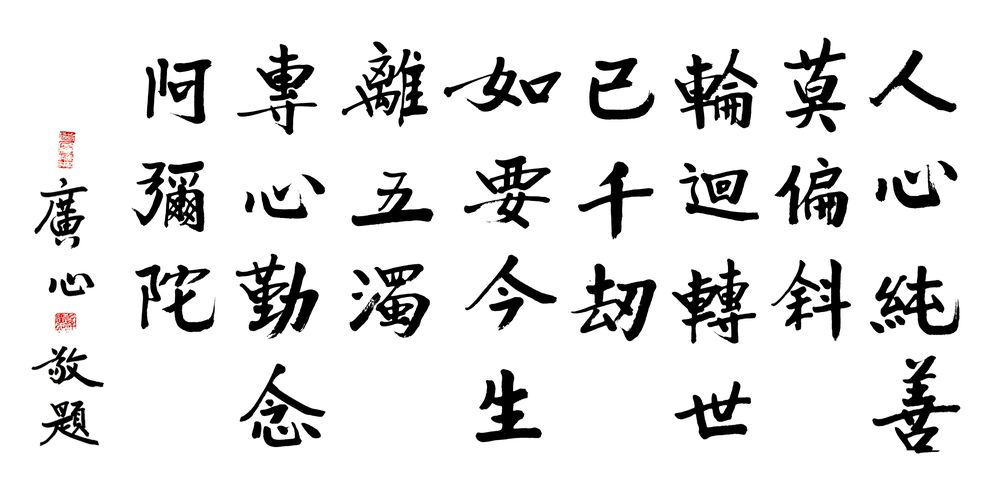 人心純善
莫偏斜
輪迴轉世
已千劫
如要今生
離五濁
專心勤念
阿彌陀
廣心敬題